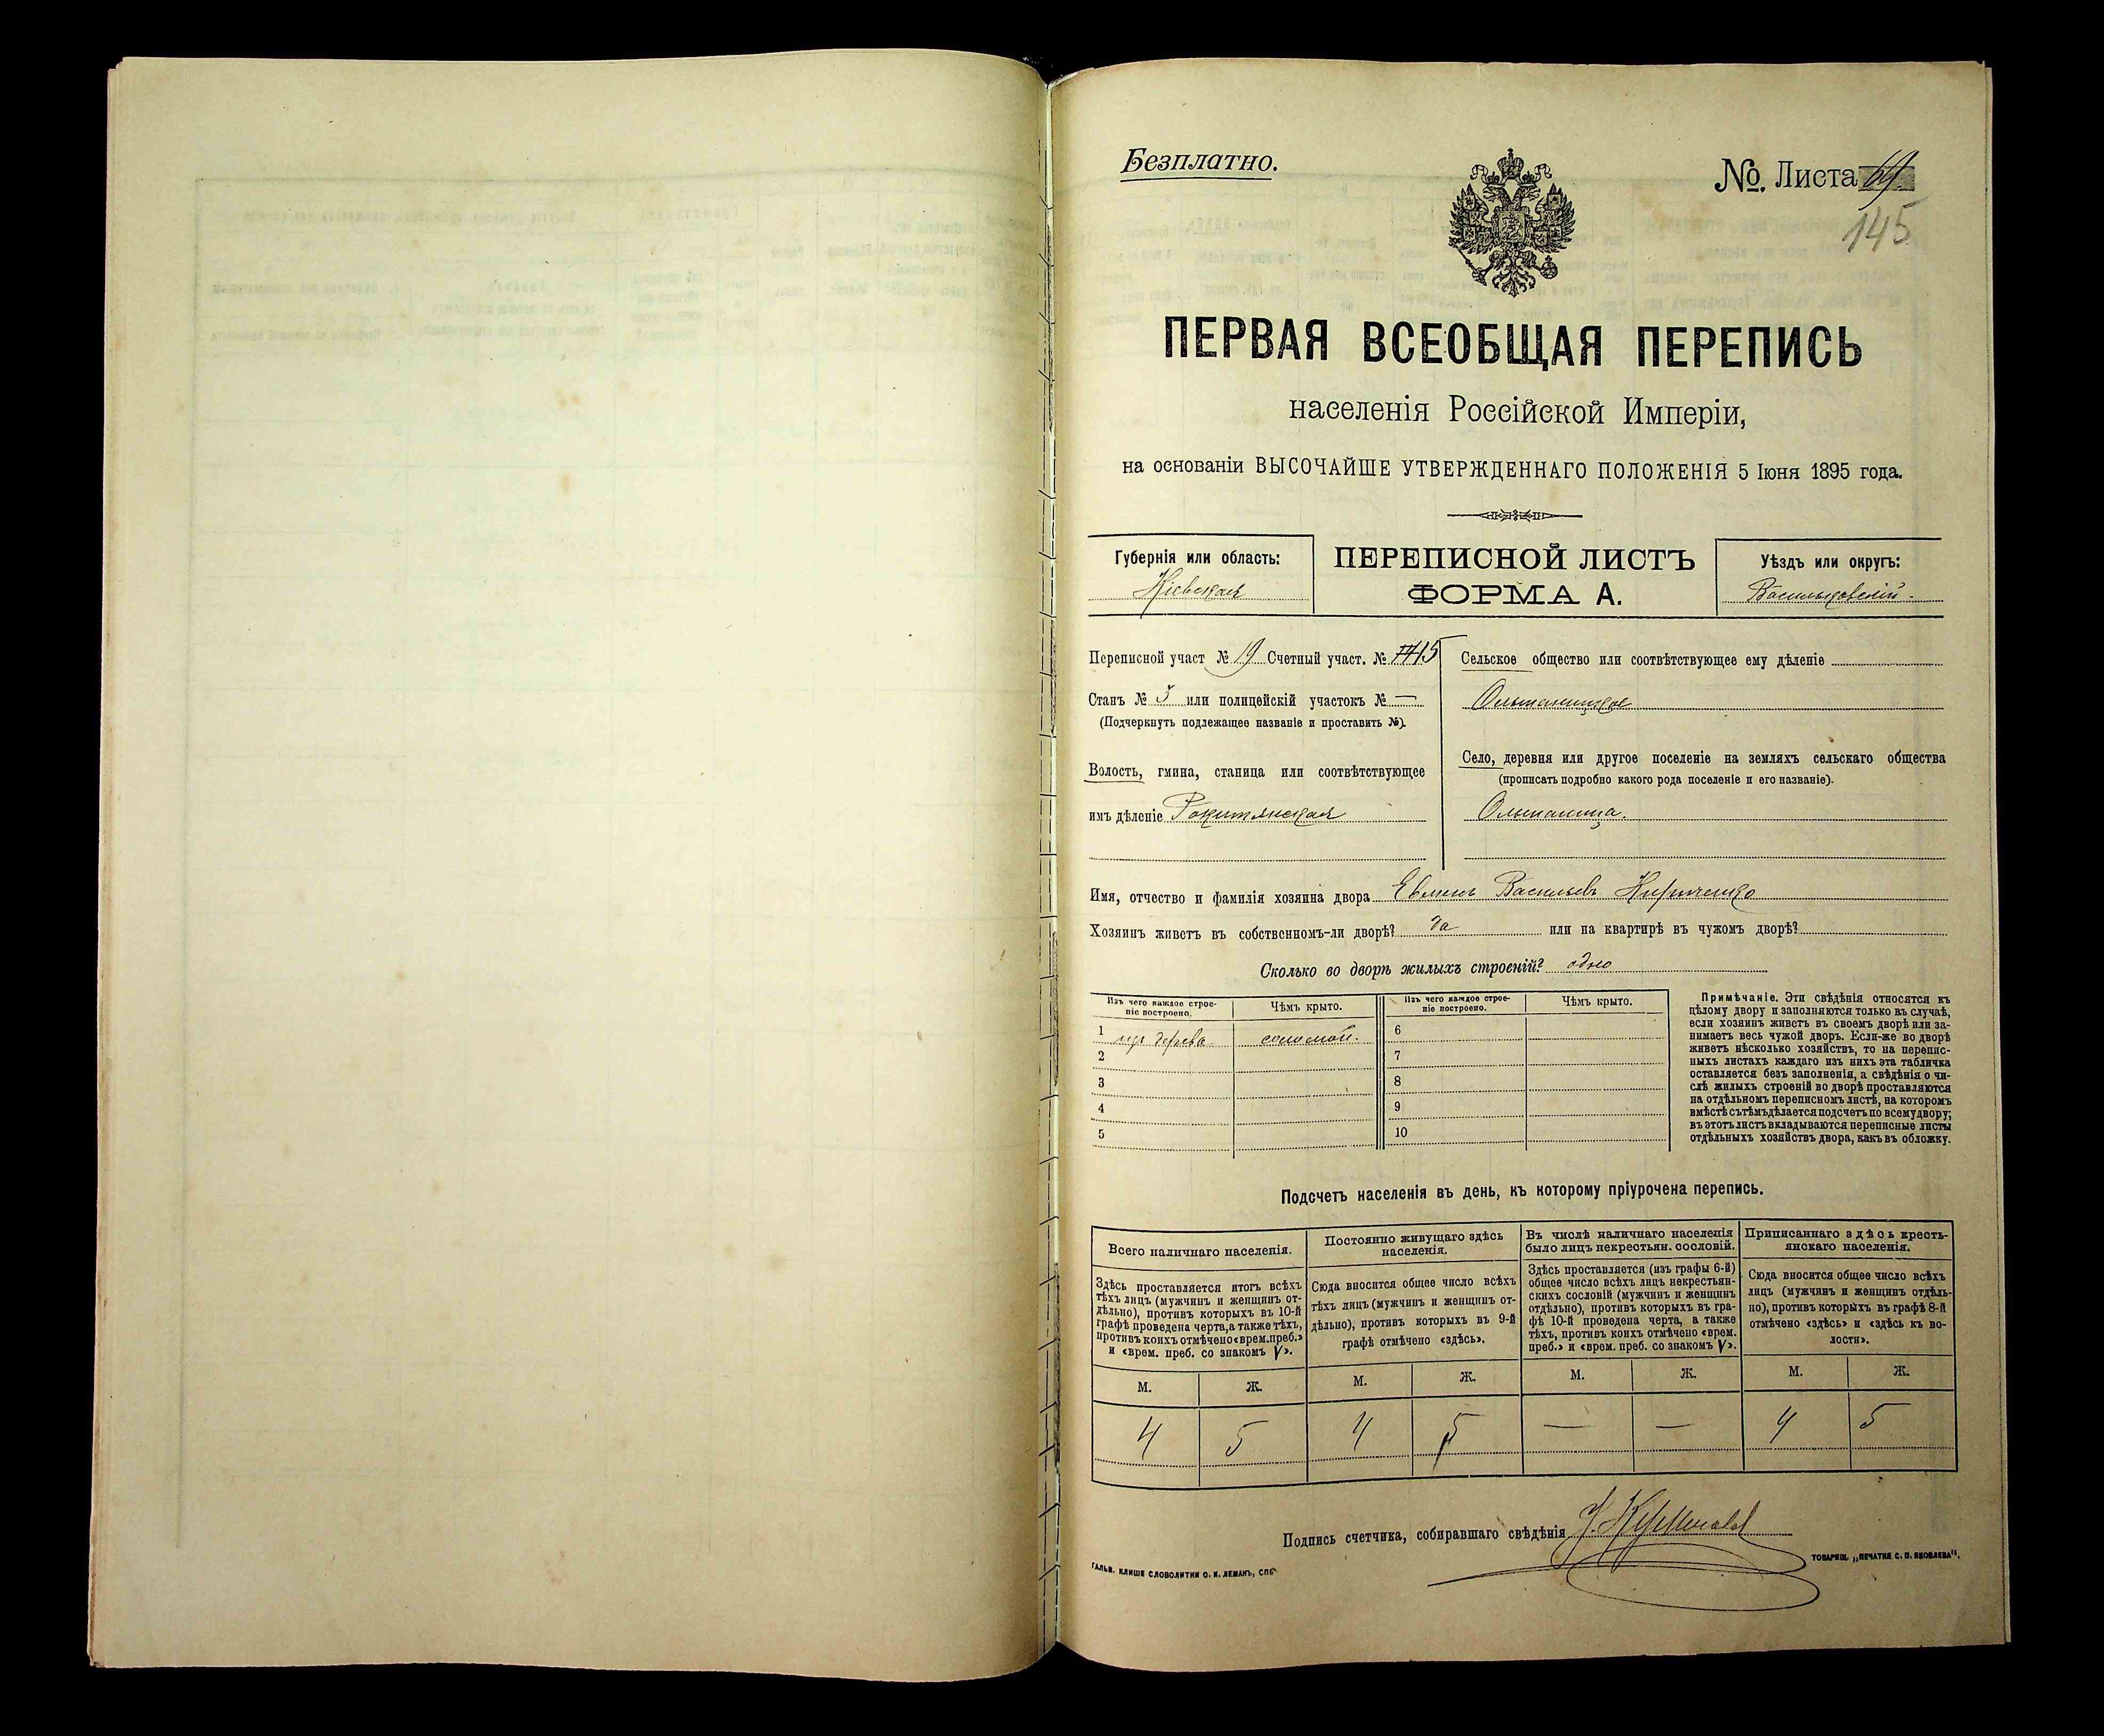 Безплатно.
№. Листа 69
145
ПЕРВАЯ ВСЕОБЩАЯ ПЕРЕПИСЬ
населенія Россійской Имперіи,
на основаніи ВЫСОЧАЙШЕ УТВЕРЖДЕННАГО ПОЛОЖЕНІЯ 5 Іюня 1895 года.
Губернія или область:
Кіевская
ПЕРЕПИСНОЙ ЛИСТЪ
ФОРМА А.
Уѣздъ или округъ:
Васильковскій
Переписной участ № 19 Счетный участ. № 15
Станъ № 3 или полицейскій участокъ № —
(Подчеркнуть подлежащее названіе и проставить №).
Волость, гмина, станица или соотвѣтствующее
имъ дѣленіе Рокитянская
Сельское общество или соотвѣтствующее ему дѣленіе
Ольшаницкое
Село, деревня или другое поселеніе на земляхъ сельскаго общества
(прописать подробно какого рода поселеніе и его названіе).
Ольшаница.
Имя, отчество и фамилія хозяина двора Васильевъ Кириченко
Хозяинъ живетъ въ собственномъ-ли дворѣ? да или на квартирѣ въ чужомъ дворѣ?
Сколько во дворѣ жилыхъ строеній? одно
Изъ чего каждое строе-
ніе построено.
Чѣмъ крыто.
Изъ чего каждое строе-
ніе построено.
Чѣмъ крыто.
1 изъ дерева соломой. 6
2 7
3 8
4 9
5 10
Примѣчаніе. Эти свѣдѣнія относятся къ
цѣлому двору и заполняются только въ случаѣ,
если хозяинъ живетъ въ своемъ дворѣ или за-
нимаетъ весь чужой дворъ. Если-же во дворѣ
живетъ нѣсколько хозяйствъ, то на перепис-
ныхъ листахъ каждаго изъ нихъ эта табличка
оставляется безъ заполненія, а свѣдѣнія о чи-
слѣ жилыхъ строеній во дворѣ проставляются
на отдѣльномъ переписномъ листѣ, на которомъ
вмѣстѣ съ тѣмъ дѣлается подсчетъ по всему двору;
въ этотъ листъ вкладываются переписные листы
отдѣльныхъ хозяйствъ двора, какъ въ обложку.
Подсчетъ населенія въ день, къ которому пріурочена перепись.
Всего наличнаго населенія.
Здѣсь проставляется итогъ всѣхъ
тѣхъ лицъ (мужчинъ и женщинъ от-
дѣльно), противъ которыхъ въ 10-й
графѣ проведена черта, а также тѣхъ,
противъ коихъ отмѣчено «врем. преб.»
и «врем. преб. со знакомъ V».
Постоянно живущаго здѣсь
населенія.
Сюда вносится общее число всѣхъ
тѣхъ лицъ (мужчинъ и женщинъ от-
дѣльно), противъ которыхъ въ 9-й
графѣ отмѣчено «здѣсь».
Въ числѣ наличнаго населенія
было лицъ некрестьян. сословій.
Здѣсь проставляется (изъ графы 6-й)
общее число всѣхъ лицъ некрестьян-
скихъ сословій (мужчинъ и женщинъ
отдѣльно), противъ которыхъ въ гра-
фѣ 10-й проведена черта, а также
тѣхъ, противъ коихъ отмѣчено «врем.
преб.» и «врем. преб. со знакомъ V».
Приписаннаго здѣсь кресть-
янскаго населенія.
Сюда вносится общее число всѣхъ
лицъ (мужчинъ и женщинъ отдѣль-
но), противъ которыхъ въ графѣ 8-й
отмѣчено «здѣсь» и «здѣсь къ во-
лости».
М. Ж. М. Ж. М. Ж. М. Ж.
4 5 4 5 — — 4 5
Подпись счетчика, собиравшаго свѣдѣнія
ГАЛЬВ. КЛИШЕ СЛОВОЛИТНИ О. И. ЛЕМАНЪ, СПБ
ТОВАРИЩ. „ПЕЧАТНЯ С. П. ЯКОВЛЕВА".